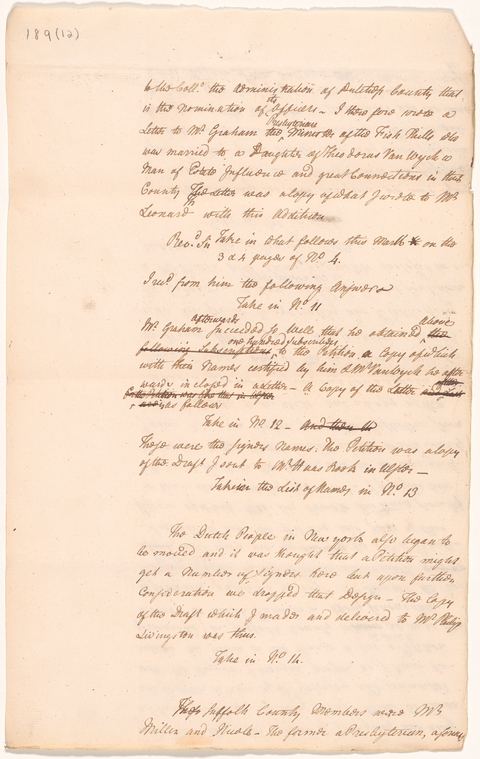 189(12)
to the Coll.º the administration of Dutchess County that
is the nomination of the Officers – I therefore wrote a
Letter to Mr Graham the Presbyterian Minister of the Fish Kills who
was married to a Daughter of Theodorus Van Wyck a
Man of Influence and great Connections in that
County The Letter was a Copy of what I wrote to Mr
Leonard with this Addition
Rev.d Sir Take in what follows this Mark X on the
3 & 4 pages of No 4.
I recd from him the following Answer
Take in No 11
Mr Graham afterwards succeeded so well that he obtained above the
following Subscriptions one hundred subscribers to the Petition a Copy of which
with their Names certified by him & Mr VanWyck he after
wards inclosed in a Letter – A Copy of the Letter
as follows
Take in No 12 – And then th
These were the Signers Names. The Petition was a Copy
of the Draft I sent to Mr in Ulster –
Take in the List of Names in No 13
The Dutch People in New York also began to
be moved and it was thought that a Petition might
get a Number of Signers here but upon further
Consideration we dropped that Design – The Copy
of the Draft which I made and delivered to Mr Philip
Livingston was thus.
Take in No 14.
The Suffolk County Members were Mr
Miller and Nicole – the former a Presbyterian, a